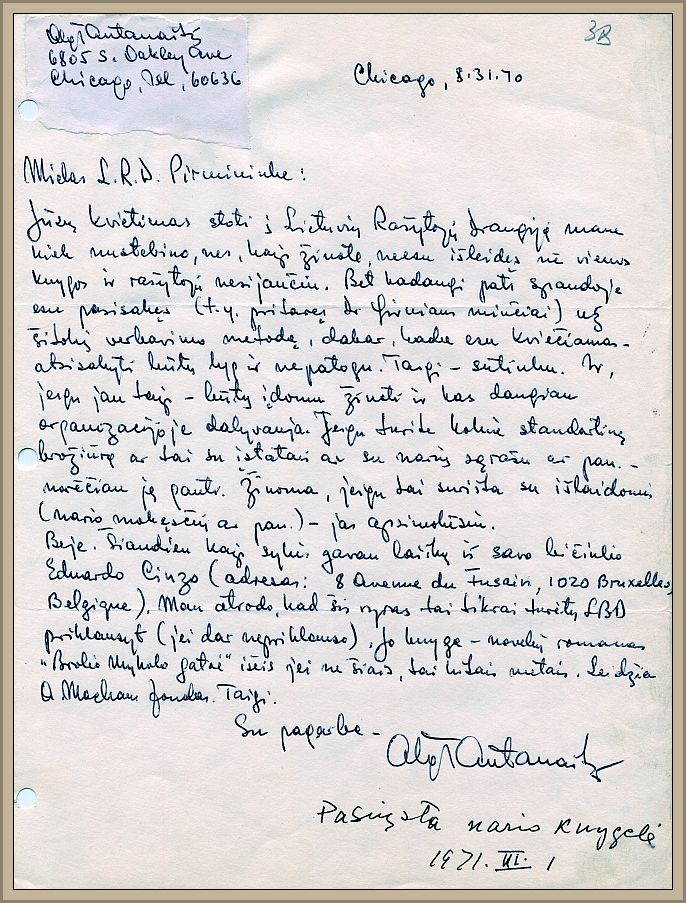 Alg. Antanaitis
6805 S. Oakley Ave
Chicago, Ill, 60636
3B
Chicago, 8.31.70
Mielas L.R.D. Pirmininke:
Jūsų kvietimas stoti į Lietuvių Rašytojų Draugiją mane
kiek nustebino, nes, kaip žinote, nesu išleidęs nė vienos
knygos ir rašytoju nesijaučiu. Bet kadangi pats spaudoje
esu pasisakęs (t.y. pritaręs Dr Girniaus minčiai) už
šitokį verbavimo metodą, dabar, kada esu kviečiamas -
atsisakyti būtų lyg ir nepatogu. Taigi - sutinku. Ir,
jeigu jau taip - būtų įdomu žinoti ir kas daugiau
organizacijoje dalyvauja. Jeigu turite kokią standartinę
brožiūrą ar tai su įstatais ar su narių sąrašu ar pan. -
norėčiau ją gauti. Žinoma, jeigu tai surišta su išlaidomis
(nario mokesčiu ar pan.) - jas apsimokėsiu.
Beje. Šiandien kaip sykis gavau laišką iš savo bičiulio
Eduardo Cinzo (adresas: 8 Avenue du Fusain, 1020 Bruxelles,
Belgique). Man atrodo, kad šis vyras tai tikrai turėtų LRD
priklausyt (jei dar nepriklauso). Jo knyga - novelių romanas
„Brolio Mykolo gatvė" išeis jei ne šiais, tai kitais metais. Leidžia
A Mackaus fondas. Taigi.
Su pagarba -
Alg. Antanaitis
Pasiųsta nario knygelė
1971. III. 1